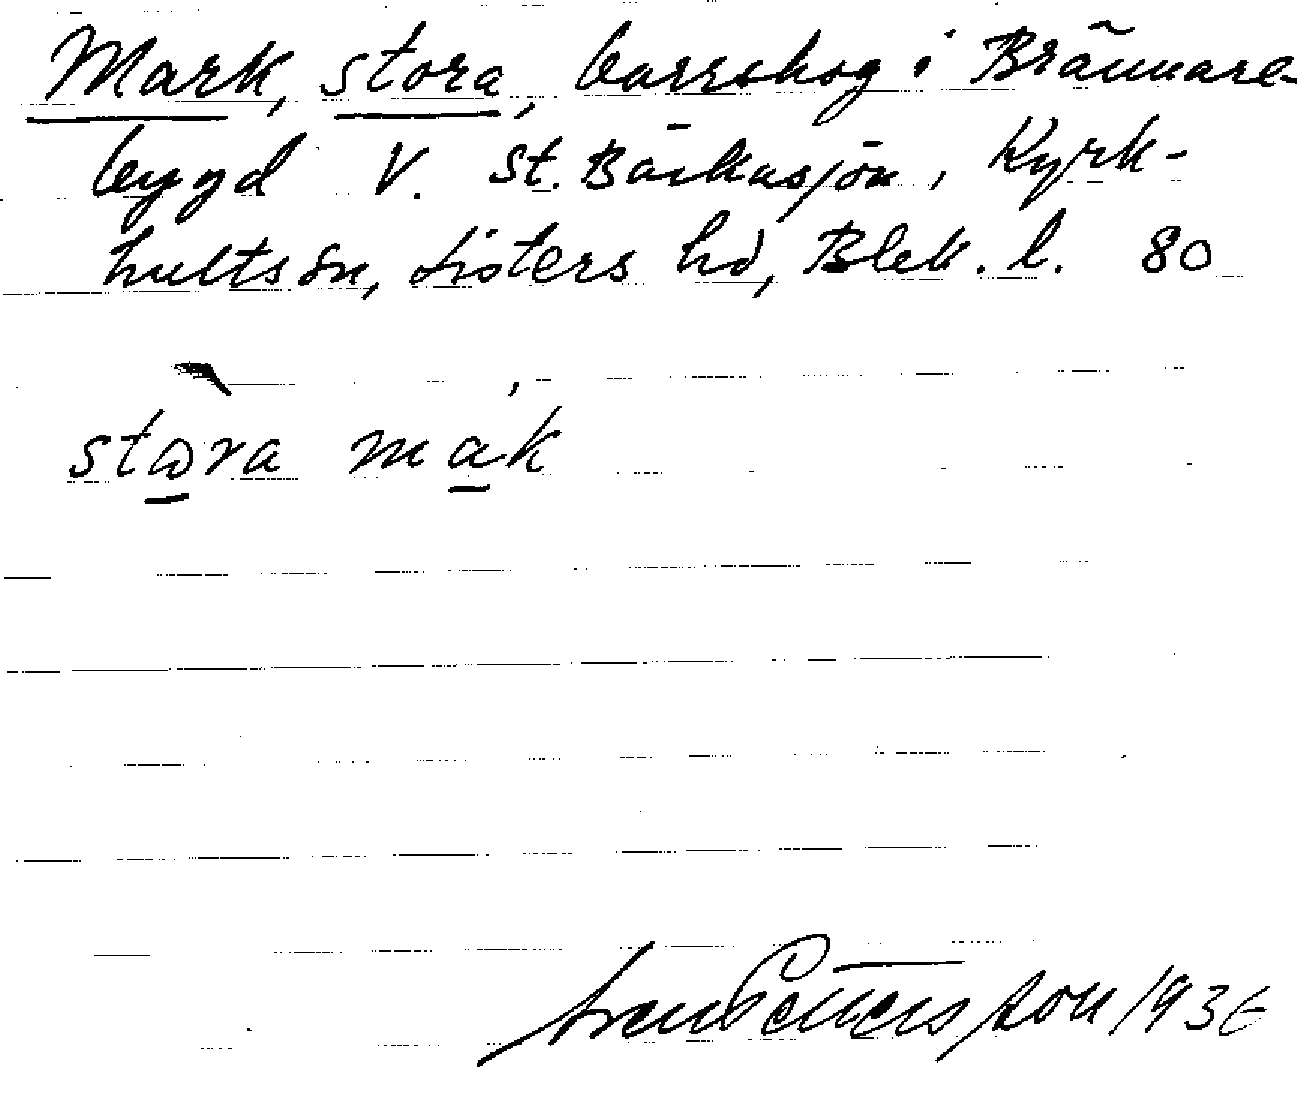 Mark, stora, barrskog i Brännare-
bygd V. St. Bäckasjön, Kyrk-
hults sn, Listers hd, Blek. l. 80
stɷra mak
Sven Petersson 1936